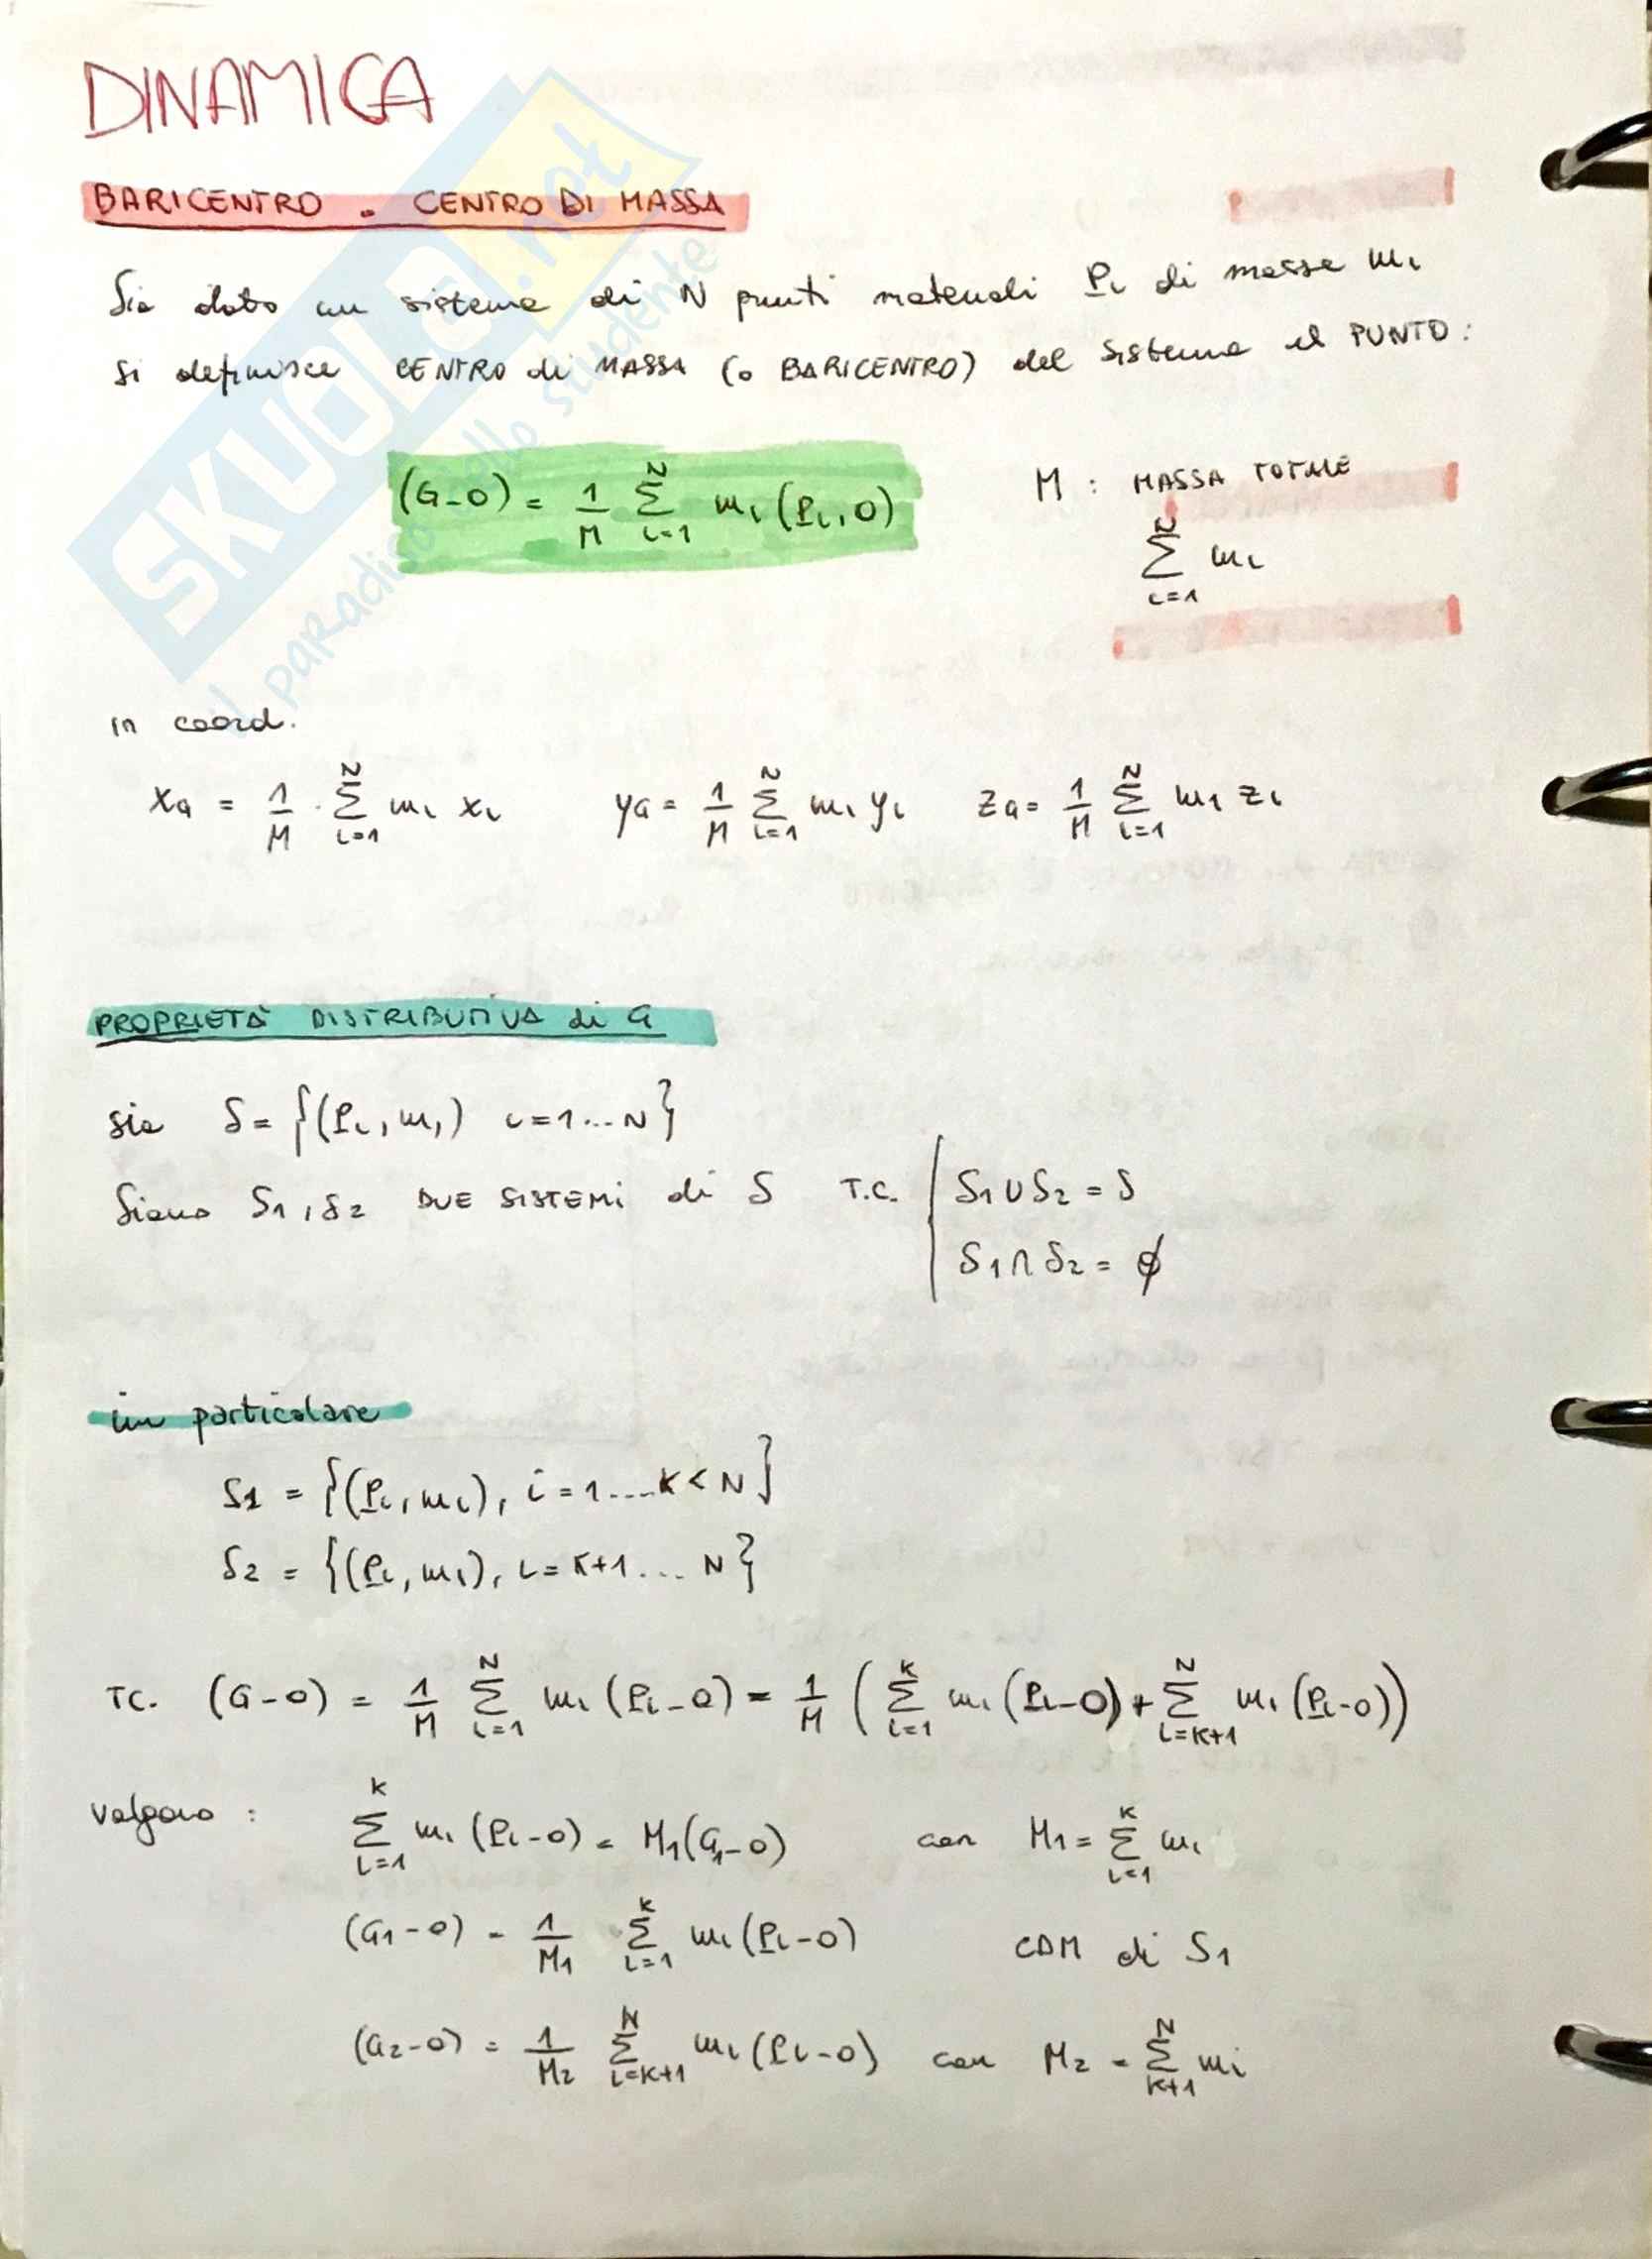 DINAMICA
BARICENTRO - CENTRO DI MASSA
Sia dato un sistema di N punti materiali P̲i di massa mi
si definisce CENTRO di MASSA (o BARICENTRO) del sistema il PUNTO:
(G-O) = 1/M ∑_{i=1}^{N} mi (P̲i, O) M : MASSA TOTALE
∑_{i=1}^{N} mi
in coord.
xG = 1/M · ∑_{i=1}^{N} mi xi yG = 1/M ∑_{i=1}^{N} mi yi zG = 1/M ∑_{i=1}^{N} mi zi
PROPRIETÀ DISTRIBUTIVA di G
sia S = {(P̲i, mi) i=1...N}
Siano S1, S2 DUE SISTEMI di S T.C. | S1 ∪ S2 = S
S1 ∩ S2 = ∅
in particolare
S1 = {(P̲i, mi), i = 1....K < N}
S2 = {(P̲i, mi), i = K+1 ... N}
TC. (G-O) = 1/M ∑_{i=1}^{N} mi (P̲i-O) = 1/M (∑_{i=1}^{K} mi (P̲i-O) + ∑_{i=K+1}^{N} mi (P̲i-O))
valgono : ∑_{i=1}^{K} mi (P̲i-O) = M1(G1-O) con M1 = ∑_{i=1}^{K} mi
(G1-O) = 1/M1 ∑_{i=1}^{K} mi (P̲i-O) CDM di S1
(G2-O) = 1/M2 ∑_{i=K+1}^{N} mi (P̲i-O) con M2 = ∑_{K+1}^{N} mi
SKUOLA.net
il paradiso dello studente